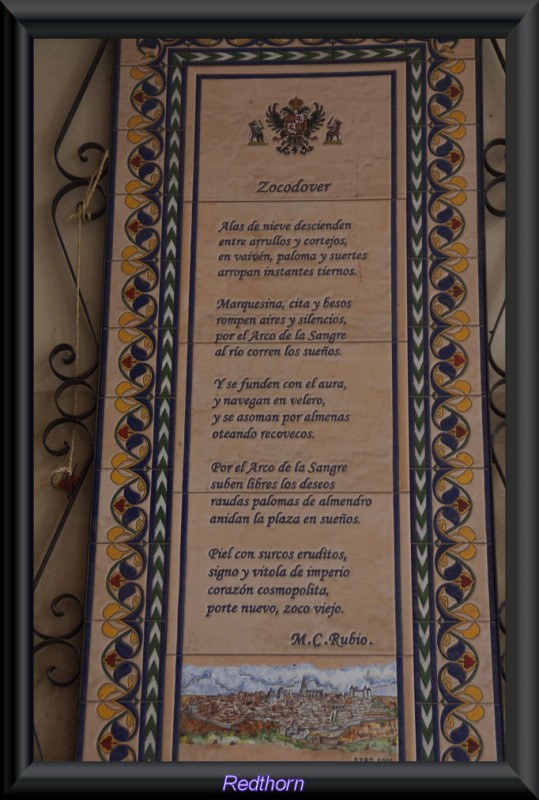 Zocodover
Alas de nieve descienden
entre arrullos y cortejos,
en vaivén, paloma y suertes
arropan instantes tiernos.
Marquesina, cita y besos
rompen aires y silencios,
por el Arco de la Sangre
al río corren los sueños.
Y se funden con el aura,
y navegan en velero,
y se asoman por almenas
oteando recovecos.
Por el Arco de la Sangre
suben libres los deseos
raudas palomas de almendro
anidan la plaza en sueños.
Piel con surcos eruditos,
signo y vitola de imperio
corazón cosmopolita,
porte nuevo, zoco viejo.
M.C.Rubio.
Redthorn